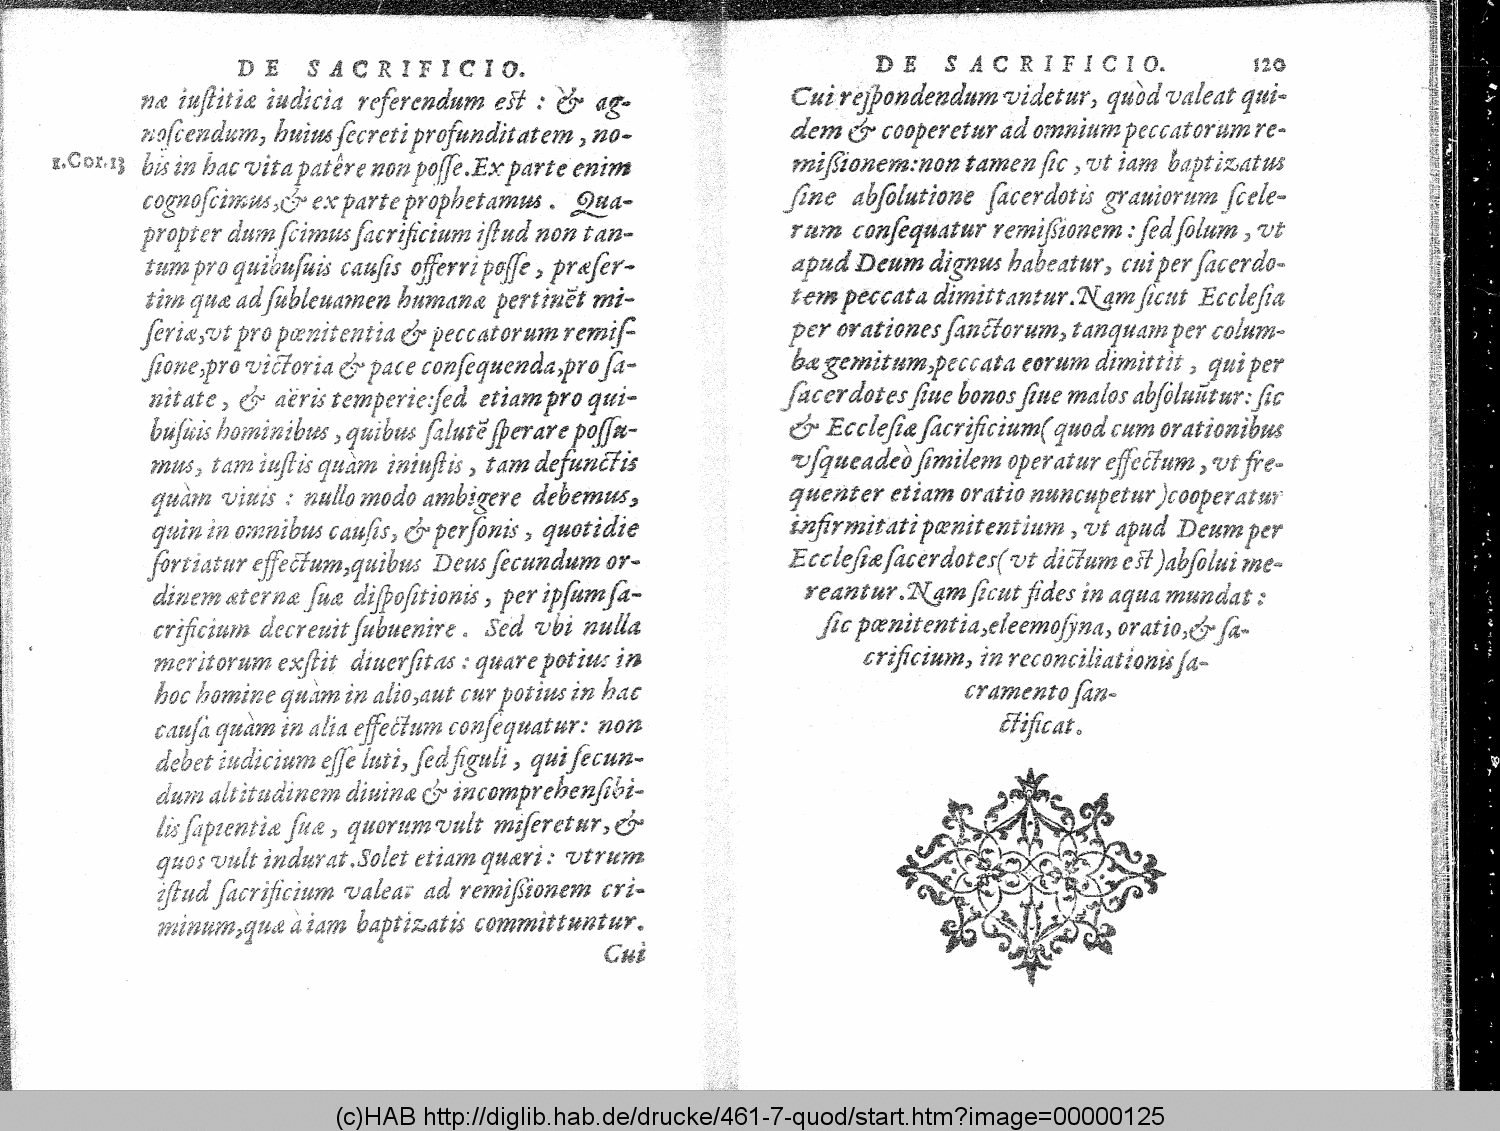 DE SACRIFICIO.
næ iuſtitiæ iudicia referendum est : & ag-
noſcendum, huius ſecreti profunditatem, no-
1.Cor.13
bis in hac vita patêre non poſſe. Ex parte enim
cognoſcimus, & ex parte prophetamus. Qua-
propter dum ſcimus ſacrificium iſtud non tan-
tum pro quibuſuis cauſis offerri poſſe, præſer-
tim quæ ad ſubleuamen humanæ pertinẽt mi-
ſeriæ, vt pro pœnitentia & peccatorum remiſ-
ſione, pro victoria & pace conſequenda, pro ſa-
nitate, & aëris temperie: ſed etiam pro qui-
buſuis hominibus, quibus ſalutẽ ſperare poſſu-
mus, tam iuſtis quàm iniuſtis, tam defunctis
quàm viuis : nullo modo ambigere debemus,
quin in omnibus cauſis, & perſonis, quotidie
ſortiatur effectum, quibus Deus ſecundum or-
dinem æternæ ſuæ diſpoſitionis, per ipſum ſa-
crificium decreuit ſubuenire. Sed vbi nulla
meritorum exſtit diuerſitas : quare potius in
hoc homine quàm in alio, aut cur potius in hac
cauſà quàm in alia effectum conſequatur: non
debet iudicium eſſe luti, ſed figuli, qui ſecun-
dum altitudinem diuinæ & incomprehenſibi-
lis ſapientiæ ſuæ, quorum vult miſeretur, &
quos vult indurat. Solet etiam quæri : vtrum
iſtud ſacrificium valeat ad remiſsionem cri-
minum, quæ à iam baptizatis committuntur.
Cui
DE SACRIFICIO. 120
Cui reſpondendum videtur, quòd valeat qui-
dem & cooperetur ad omnium peccatorum re-
miſsionem: non tamen ſic, vt iam baptizatus
ſine abſolutione ſacerdotis grauiorum ſcele-
rum conſequatur remiſsionem : ſed ſolum, vt
apud Deum dignus habeatur, cui per ſacerdo-
tem peccata dimittantur. Nam ſicut Eccleſia
per orationes ſanctorum, tanquam per colum-
bæ gemitum, peccata eorum dimittit, qui per
ſacerdotes ſiue bonos ſiue malos abſoluũtur: ſic
& Eccleſiæ ſacrificium (quod cum orationibus
vſqueadeò ſimilem operatur effectum, vt fre-
quenter etiam oratio nuncupetur) cooperatur
infirmitati pœnitentium, vt apud Deum per
Eccleſiæ ſacerdotes (vt dictum est) abſolui me-
reantur. Nam ſicut fides in aqua mundat :
ſic pœnitentia, eleemoſyna, oratio, & ſa-
crificium, in reconciliationis ſa-
cramento ſan-
ctificat.
(c)HAB http://diglib.hab.de/drucke/461-7-quod/start.htm?image=00000125